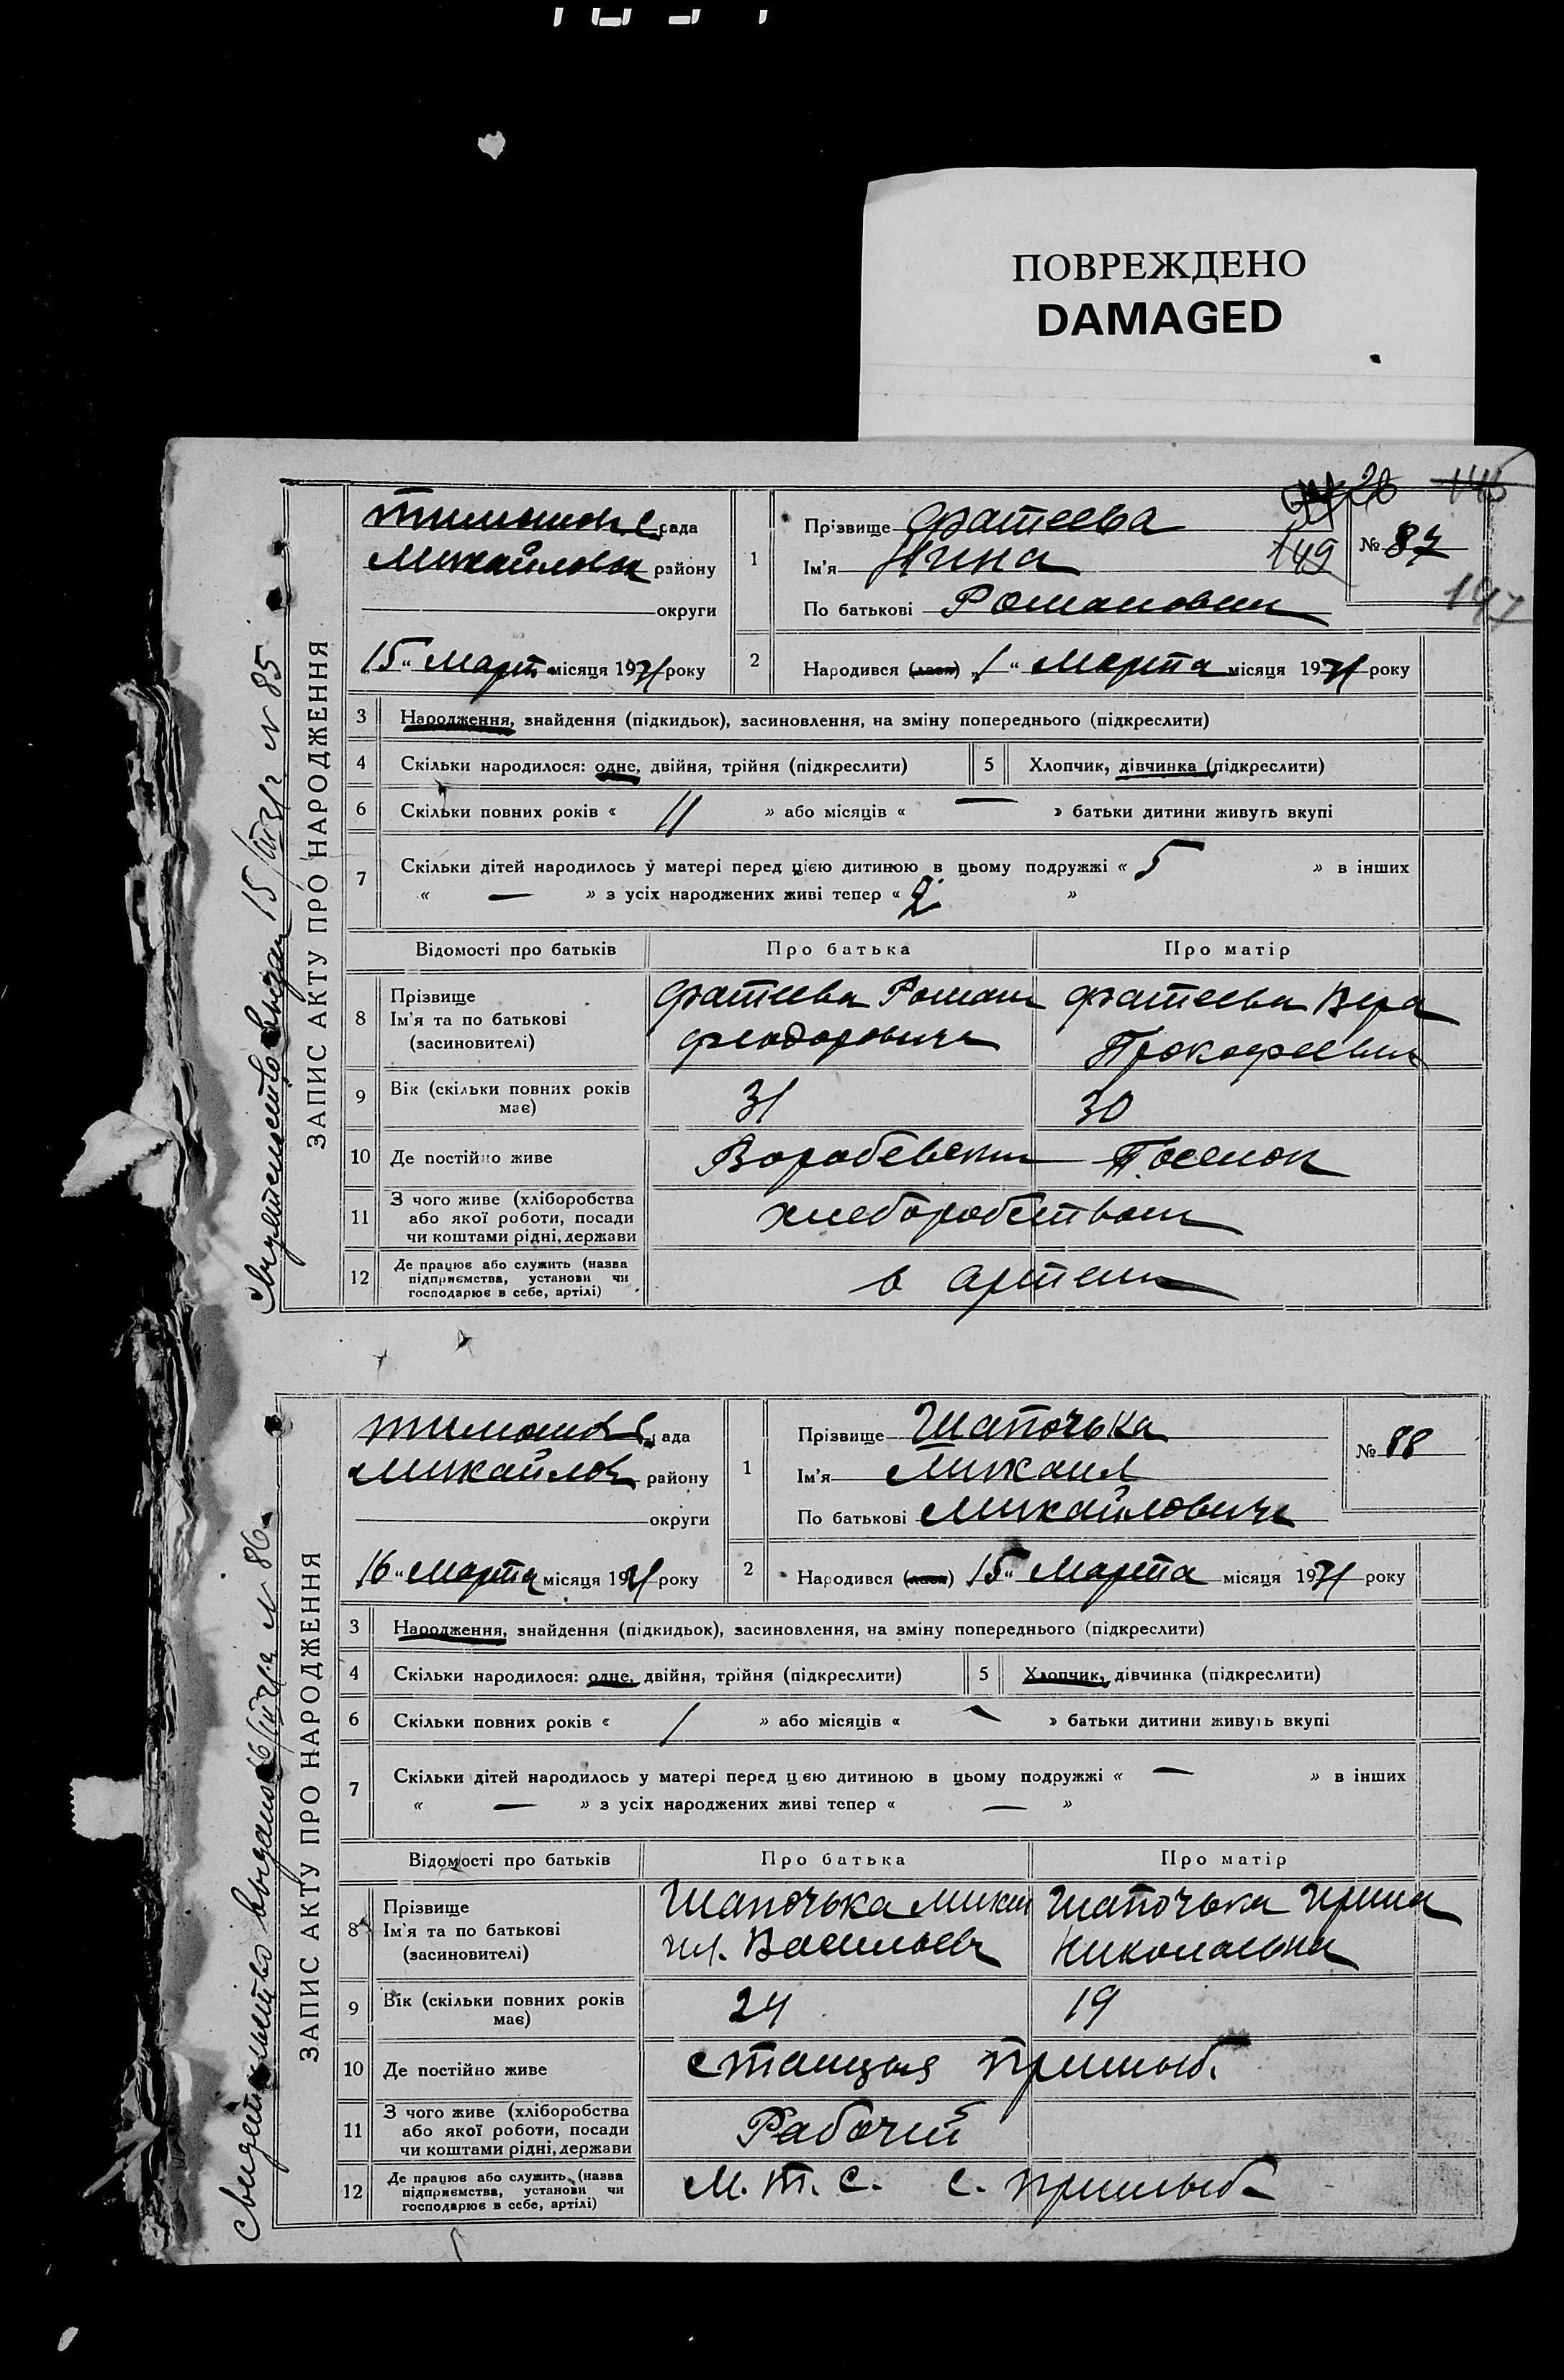 ПОВРЕЖДЕНО
DAMAGED
20 146
149
147
Свидетельство выдан 15/III 31 г N 85
ЗАПИС АКТУ ПРО НАРОДЖЕННЯ
Тимошов. с. рада
Михайловск району
округи
15 „ Март місяця 1931 року
1 Прізвище Фатеева
Ім'я Нина
По батькові Романовна
№ 87
2 Народився (лася) „ 1 “ Марта місяця 1931 року
3 Народження, знайдення (підкидьок), засиновлення, на зміну попереднього (підкреслити)
4 Скільки народилося: одне, двійня, трійня (підкреслити) 5 Хлопчик, дівчинка (підкреслити)
6 Скільки повних років « 11 » або місяців « — » батьки дитини живуть вкупі
7 Скільки дітей народилось у матері перед цією дитиною в цьому подружжі « 5 » в інших
« — » з усіх народжених живі тепер « 2 »
Відомості про батьків Про батька Про матір
8 Прізвище Ім'я та по батькові (засиновителі)
Фатеева Роман Феодоровича
Фатеева Вера Прокофеевна
9 Вік (скільки повних років має) 31 30
10 Де постійно живе Воробевский Поселок
11 З чого живе (хліборобства або якої роботи, посади чи коштами рідні, держави
хлеборобством
12 Де працює або служить (назва підприємства, установи чи господарює в себе, артілі)
в артели
Свидетельство выдано 16/III 31 г. N 86
ЗАПИС АКТУ ПРО НАРОДЖЕННЯ
Тимошов с рада
Михайлов району
округи
16 „ Марта місяця 1931 року
1 Прізвище Шапочька
Ім'я Михаил
По батькові Михайлович
№ 88
2 Народився (лася) 15 “ Марта місяця 1931 року
3 Народження, знайдення (підкидьок), засиновлення, на зміну попереднього (підкреслити)
4 Скільки народилося: одне, двійня, трійня (підкреслити) 5 Хлопчик, дівчинка (підкреслити)
6 Скільки повних років « 1 » або місяців « — » батьки дитини живуть вкупі
7 Скільки дітей народилось у матері перед цією дитиною в цьому подружжі « — » в інших
« — » з усіх народжених живі тепер « — »
Відомості про батьків Про батька Про матір
8 Прізвище Ім'я та по батькові (засиновителі)
Шапочька Михаил Васильев
Шапочька Ирина Николаевна
9 Вік (скільки повних років має) 24 19
10 Де постійно живе станцыя Пришыб.
11 З чого живе (хліборобства або якої роботи, посади чи коштами рідні, держави
Рабочий
12 Де працює або служить (назва підприємства, установи чи господарює в себе, артілі)
М. Т. С. с. Пришыб